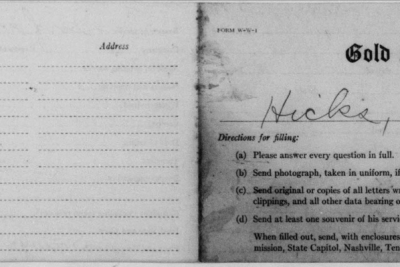 Address
FORM W-W-1
Gold
Hicks,
Directions for filling:
(a) Please answer every question in full.
(b) Send photograph, taken in uniform, if
(c) Send original or copies of all letters w
clippings, and all other data bearing o
(d) Send at least one souvenir of his servi
When filled out, send, with enclosures
mission, State Capitol, Nashville, Ten